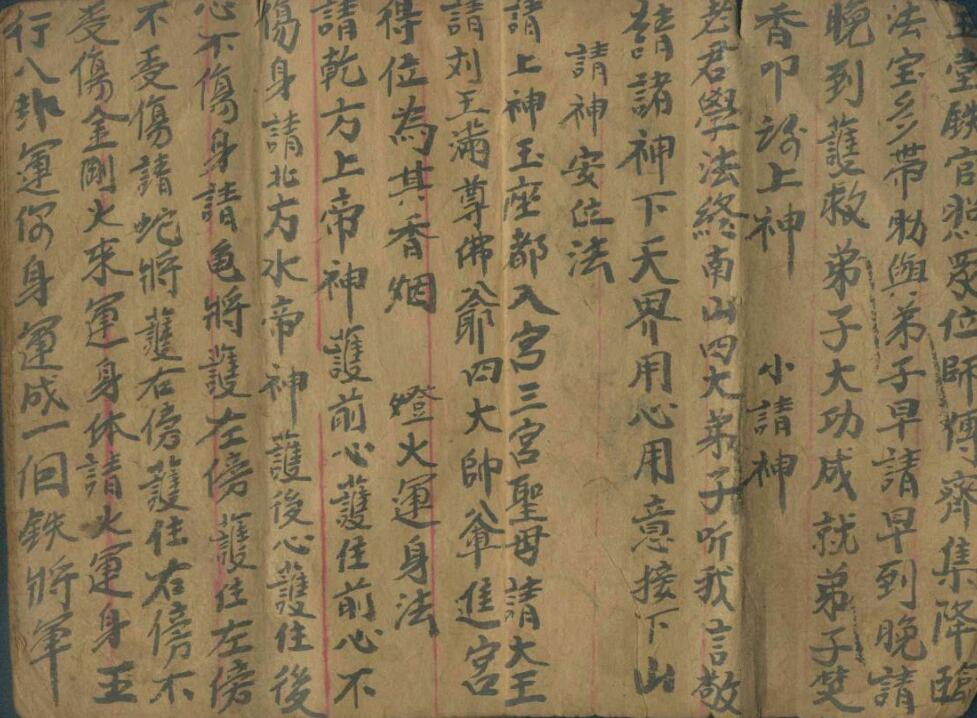 堂銀官恕眾位師傅齊集降臨
法宝多帶助與弟子早請早到晚請
晚到護救弟子大功成就弟子焚
香叩 上神 小請神
老君學法終南山四大弟子听我言敬
請諸神下天界用心用意接下山
請神安位法
請上神玉座都入宮三宮聖母請大王
請刘王滿尊佛爺四大帥爺進宮
得位為其香烟 燈火運身法
請乾方上帝神護前心護住前心不
傷身請北方水帝神護後心護住後
心不傷身請亀將護左傍護住左傍
不受傷請蛇將護右傍護住右傍不
受傷金剛火來運身体請火運身玉
行八卦運你身運成一個鉄將軍